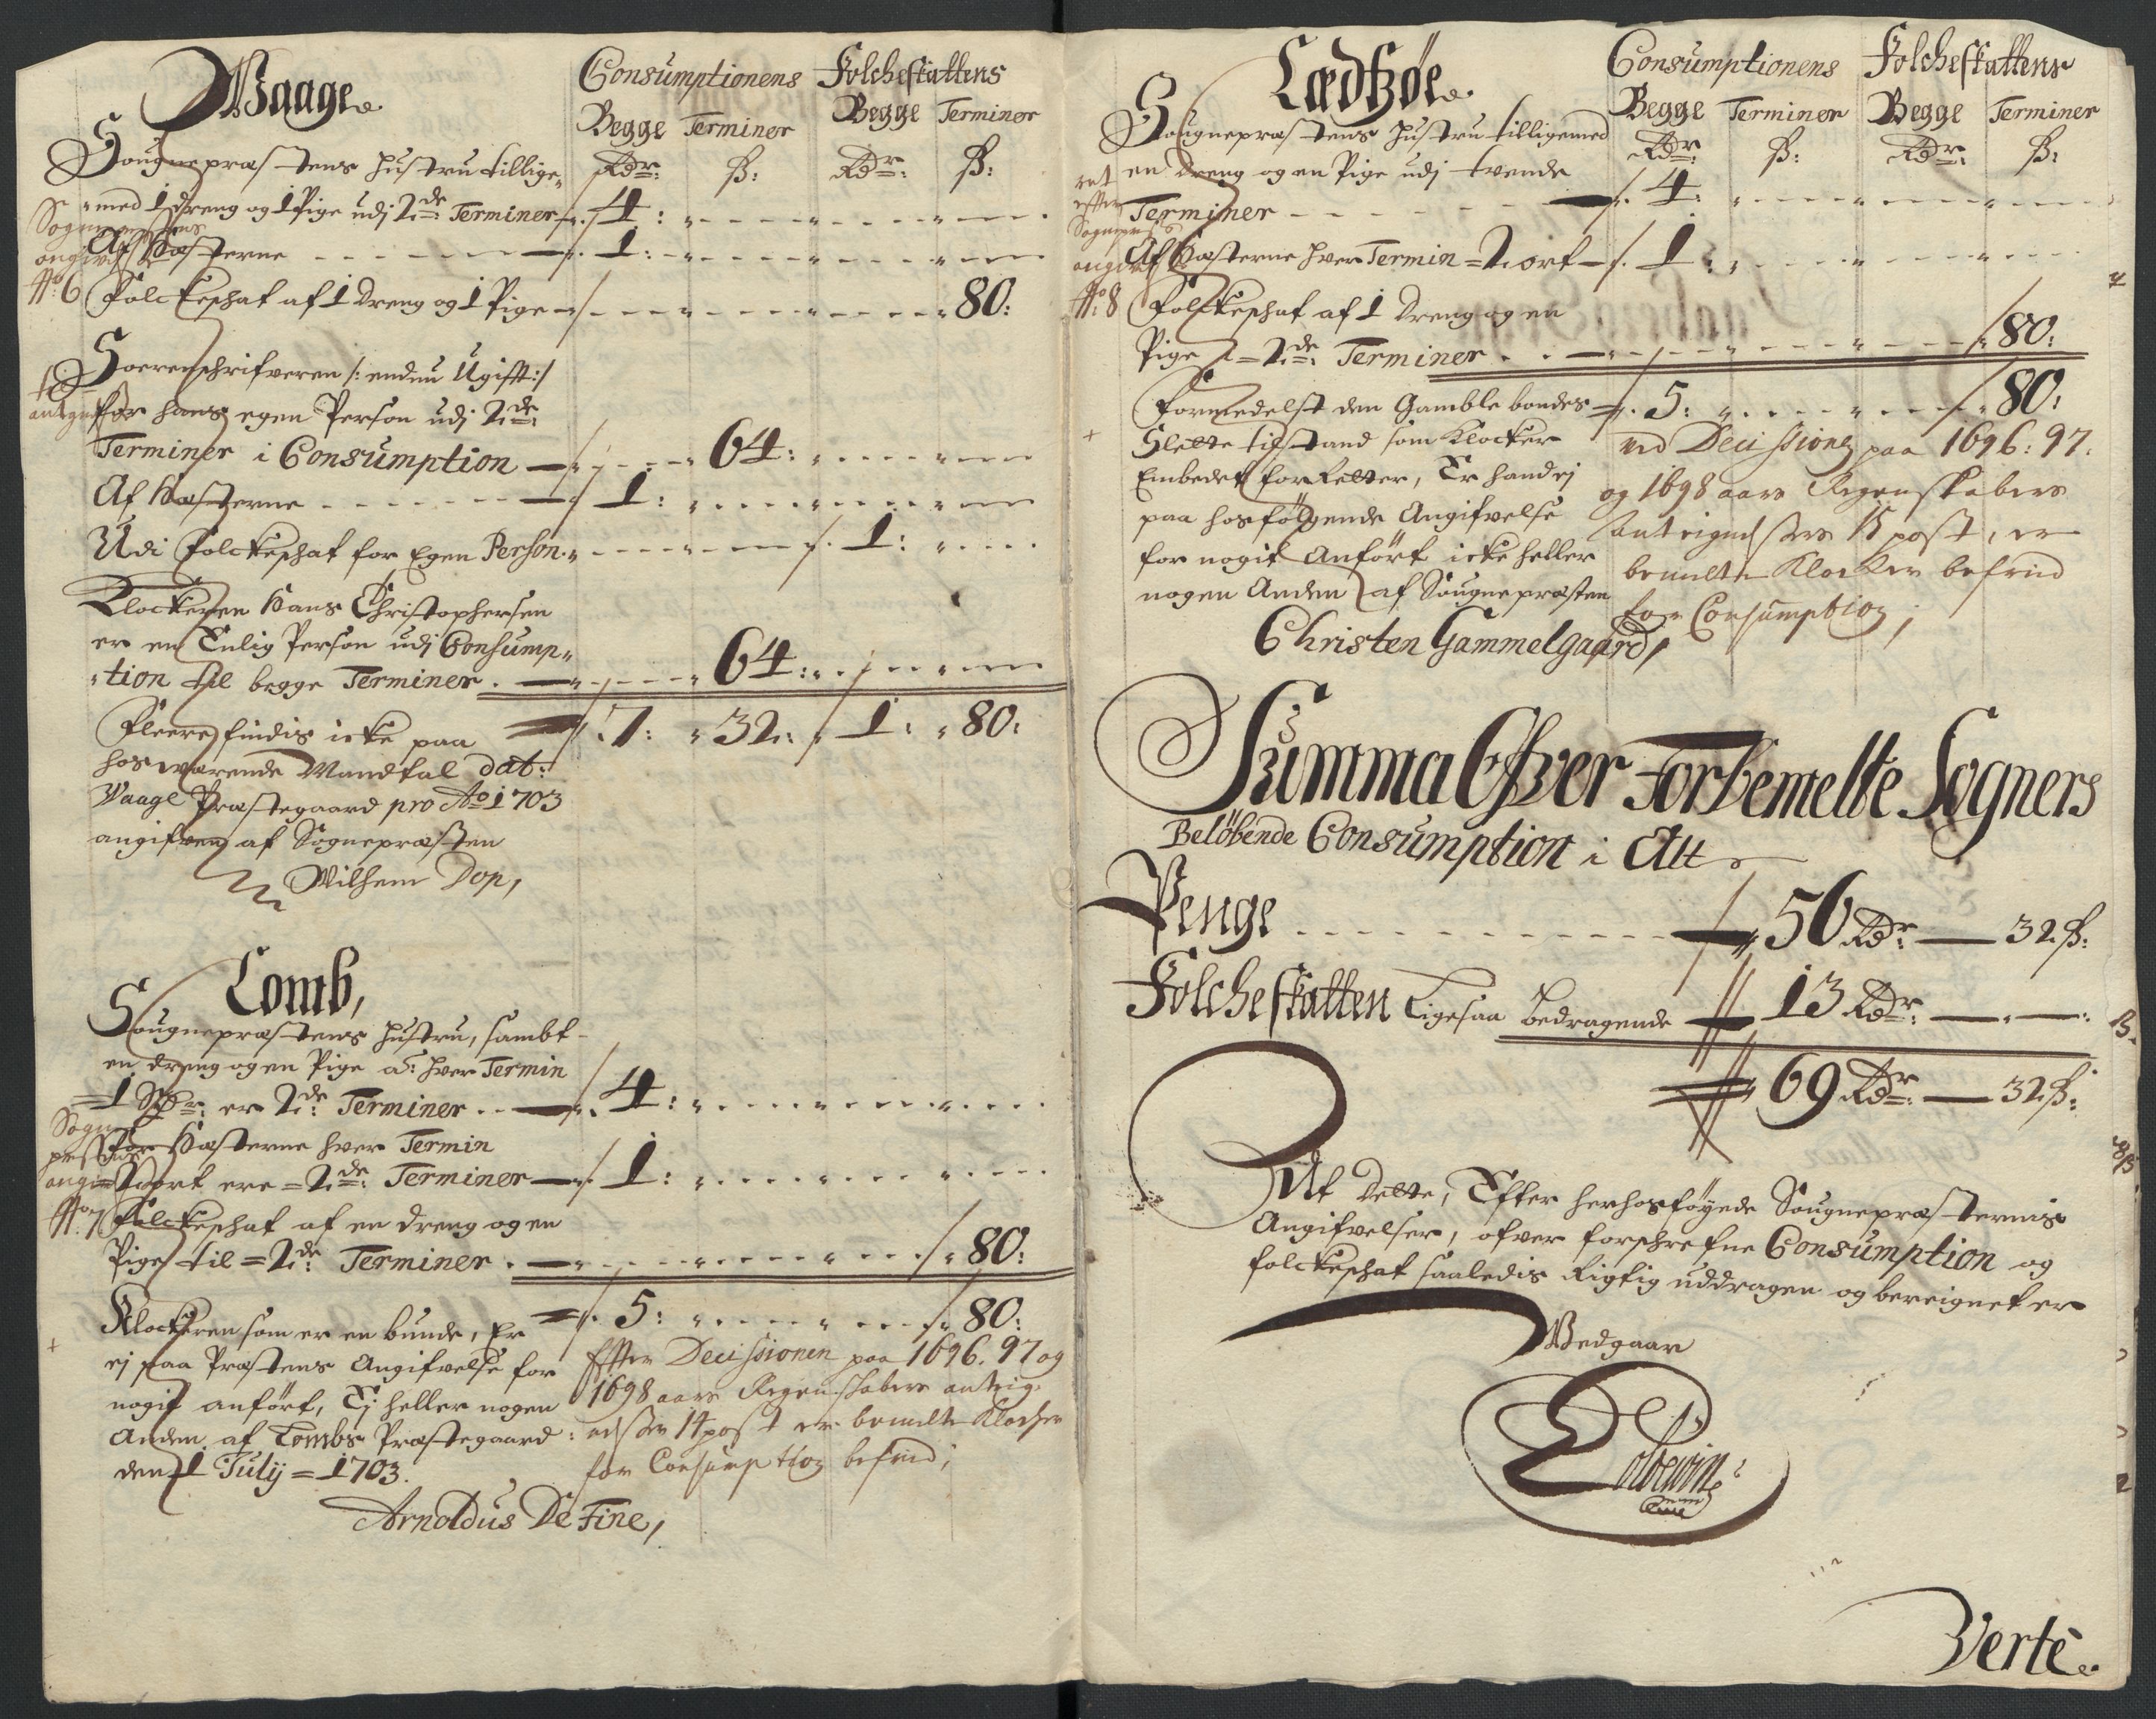 Waage
Consumptionens Folcheskattens
Begge Terminer Begge Terminer
Rdr: ß: Rdr: ß:
Sougnepræstens hustru tillige,,
,,med 1 dreng og 1 Pige udj 2de Terminer 4:
Af Hæsterne 1:
No 6
Folckeschat af 1 dreng og 1 Pige 80:
Soerenschrifveren /: endnu Ugift :/
for hans egen Person udj 2de
Terminer i Consumption 64:
Af Hæsterne 1:
Udi Folckeschat for Egen Person 1:
Klockeren Hans Christophersen
er en Enlig Person udj Consump,,
,,tion til begge Terminer 64:
7: 32: 1: 80:
Fleere findis icke paa
hosværende Mandtal dat:
Vaage Præstegaard pro Ao 1703
angifven af Sognepræsten
Wilhem Dop,
Tomb,
Sougnepræstens hustru, sambt
en dreng og en Pige a: hver Termin
1 Rdr: er 2de Terminer 4:
For Hæsterne hver Termin
2 ort ere = 2de: Terminer 1:
No 7
Folckeschat af en dreng og en
Pige til = 2de: Terminer 80:
5: 80:
Klockeren som er en bunde, Er
ej paa Præstens Angifvelse for
nogit anført, Ej heller nogen
Anden af Tombs Præstegaard
den 1 Julij = 1703.
Arnoldus De Fine,
Effter Decisionen paa 1696. 97 og
1698 aars Regenskabers antig
nelsser 14 post er bemelte Klocher
for Consumption befried;
Lædtzøe
Consumptionens Folcheskattens
Begge Terminer Begge Terminer
Rdr: ß: Rdr: ß:
Sougnepræstens hustru tilligemed
en dreng og en Pige udj tvende
Terminer 4:
Af Hæsterne hver Termin = 2 ort 1:
No 8
Folckeschat af 1 dreng og en
Pige i = 2de: Terminer 80:
5: 80:
Formedelst den Gamble bondes
Slette tilstand som Klocker
Embedet forretter, Er hand ej
paa hosfølgende Angifvelse
for nogit Anført icke heller
nogen Anden af Sougnepræsten
Christen Gammelgaard,
ved Decissionen paa 1696: 97.
og 1698 aars Regenskabers
antegnelssers 15 post, er
bemelte Klocker befried
for Consumption;
Summa Ofver Forbemelte Sogners
Beløbende Consumption i Alt
Penge 56 Rdr: 32 ß:
Folcheskatten Ligesaa bedragende 13 Rdr:
69 Rdr: 32 ß:
At dette, Efter herhosføyede Sougnepræsternis
Angifvelser, ofver forschrefne Consumption og
folckeschat saaledis Rigtig uddragen og bereignet er
Vedgaar
Verte.